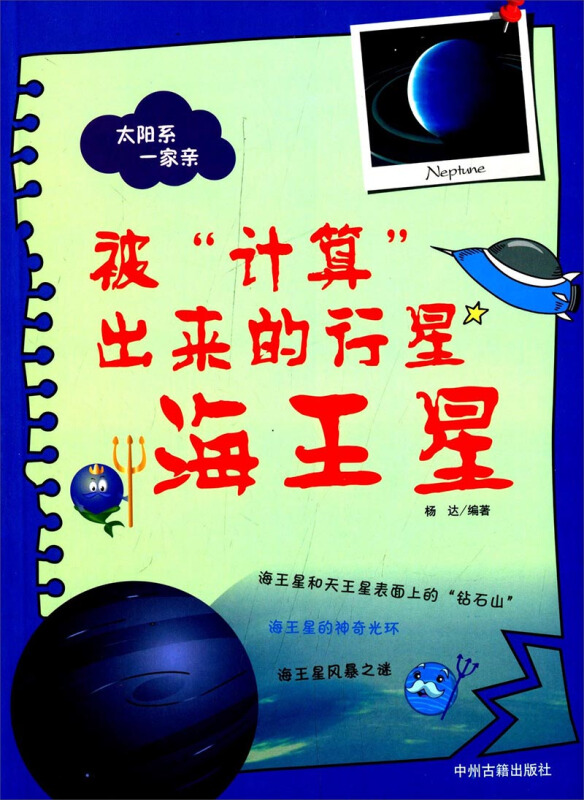 Neptune
太阳系
一家亲
被“计算”
出来的行星
海王星
杨 达/编著
海王星和天王星表面上的“钻石山”
海王星的神奇光环
海王星风暴之谜
中州古籍出版社